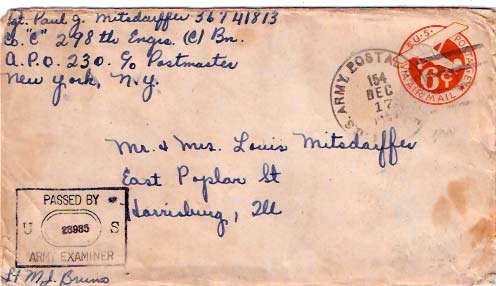 Sgt. Paul J. Mitsdarffer 36741813
Co. "C" 298th Engrs. (C) Bn.
A.P.O. 230. c/o Postmaster
New York, N.Y.
U.S. POSTAGE
6¢
VIA AIR MAIL
U.S. ARMY POSTAL
154
DEC
17
Mr. & Mrs. Louis Mitsdarffer
East Poplar St
Harrisburg, Ill
PASSED BY
U 28985 S
ARMY EXAMINER
Lt M.J. Bruno